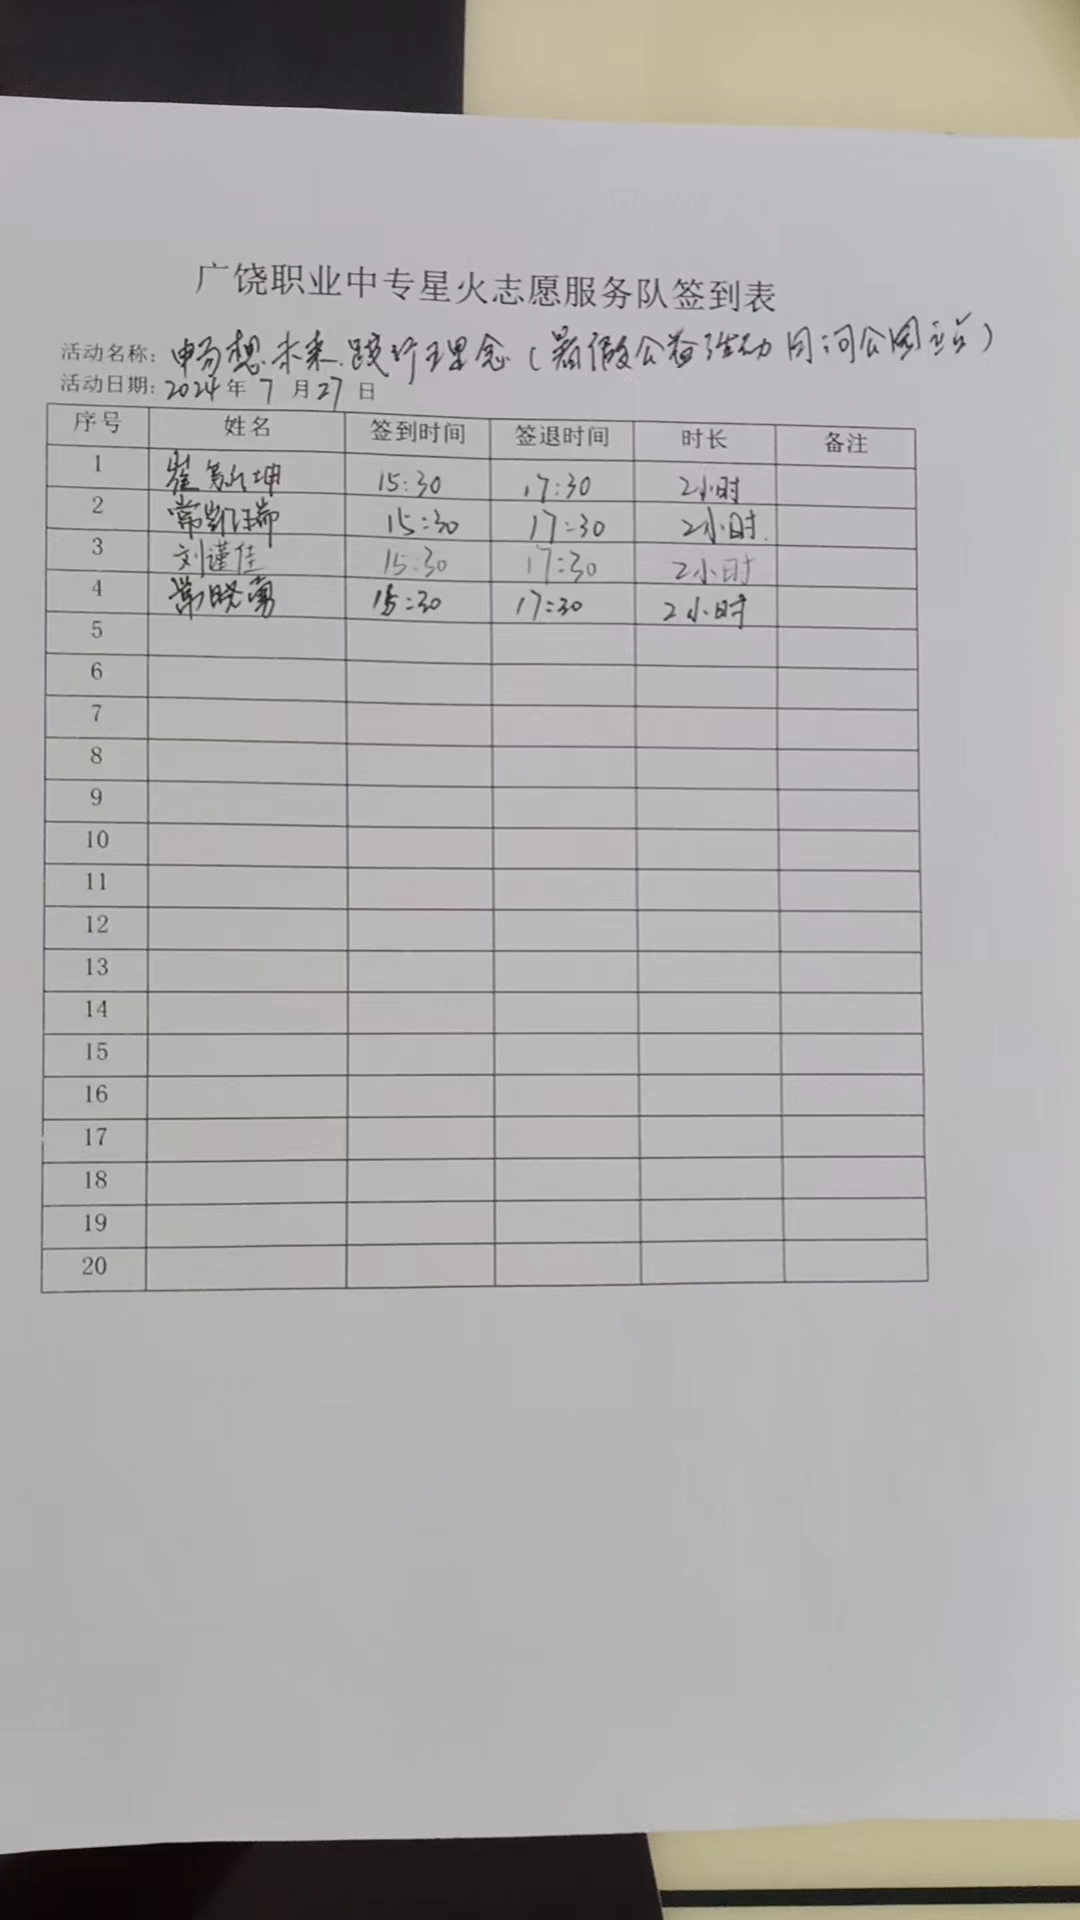 广饶职业中专星火志愿服务队签到表
活动名称：畅想未来.践行理念（暑假公益活动 月河公园站）
活动日期：2024年 7 月27 日
序号 姓名 签到时间 签退时间 时长 备注
1 崔 坤 15:30 17:30 2小时
2 常 瑞 15:30 17:30 2小时.
3 刘谨佳 15:30 17:30 2小时
4 常晓勇 15:30 17:30 2小时
5
6
7
8
9
10
11
12
13
14
15
16
17
18
19
20